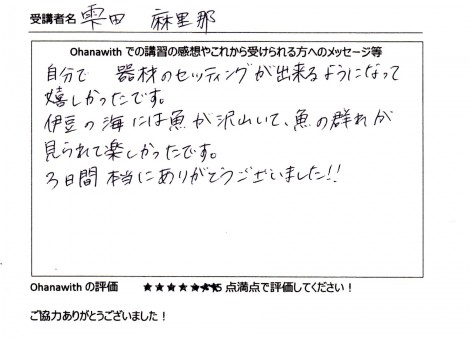 受講者名 雫田 麻里那
Ohanawith での講習の感想やこれから受けられる方へのメッセージ等
自分で 器材のセッティングが出来るようになって
嬉しかったです。
伊豆の海には魚が沢山いて、魚の群れが
見られて楽しかったです。
3日間本当にありがとうございました!!
Ohanawith の評価 ★★★★★★★5 点満点で評価してください！
ご協力ありがとうございました！